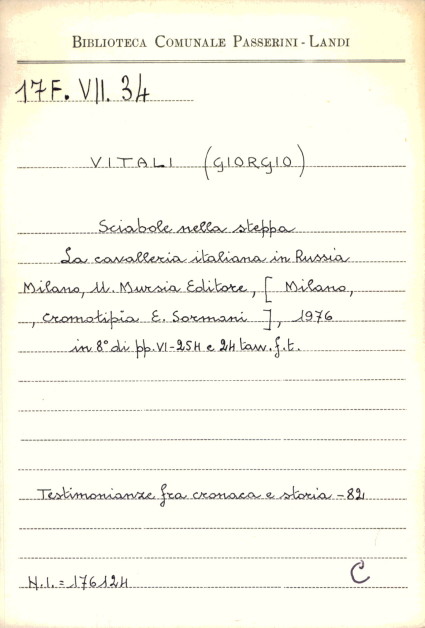 BIBLIOTECA COMUNALE PASSERINI - LANDI
17F. VII. 34
VITALI (GIORGIO)
Sciabole nella steppa
La cavalleria italiana in Russia
Milano, U. Mursia Editore, [ Milano,
, cromotipia E. Sormani ], 1976
in 8° di pp. VI-254 e 24 tav. f.t.
Testimonianze fra cronaca e storia - 82
N.I. = 176124
C